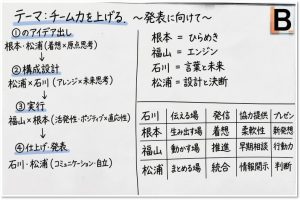 テーマ:チーム力を上げる ～発表に向けて～
B
①のアイデア出し
根本・松浦(着想×原点思考)
↓
②構成設計
松浦×石川(アレンジ×未来思考)
↓
③実行
福山×根本(活発性・ポジティブ×直応性)
↓
④仕上げ・発表
石川・松浦(コミュニケーション・自立)
根本 = ひらめき
福山 = エンジン
石川 = 言葉と未来
松浦 = 設計と決断
石川 伝える場 発信 協力提供 プレゼン
根本 生み出す場 着想 柔軟性 新発想
福山 動かす場 推進 早期相談 行動力
松浦 まとめる場 統合 情報開示 判断